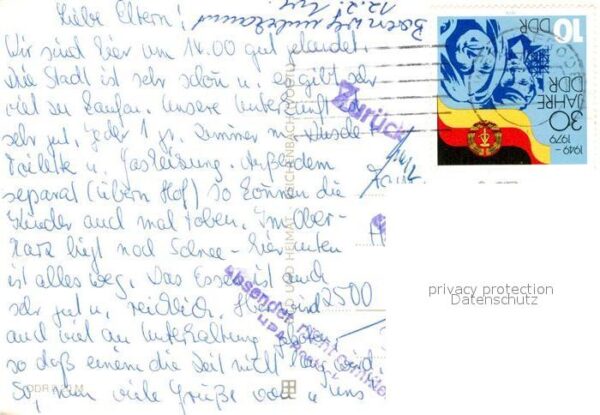 Liebe Eltern!
Wir sind hier um 14.00 gut gelandet.
Die Stadt ist sehr schön u. es gibt sehr
viel zu kaufen. Unsere Unterkunft ist
sehr gut, jeder 1 gr. Zimmer mit Dusche
Toilette u. Gasheizung. Außerdem
separat (übern Hof) so können die
Kinder auch mal toben. Im Ober-
harz liegt noch Schnee - hier unten
ist alles weg. Das Essen ist auch
sehr gut u. reichlich. Hier wird
auch viel an Unterhaltung geboten,
so daß einem die Zeit nicht lang wird.
So, nun viele Grüße von uns
12.2.
Zurück
2500
Absender nicht
BILD UND HEIMAT REICHENBACH (VOGTL)
DDR
M
10
DDR
30
JAHRE
DDR
1949 -
1979
privacy protection
Datenschutz